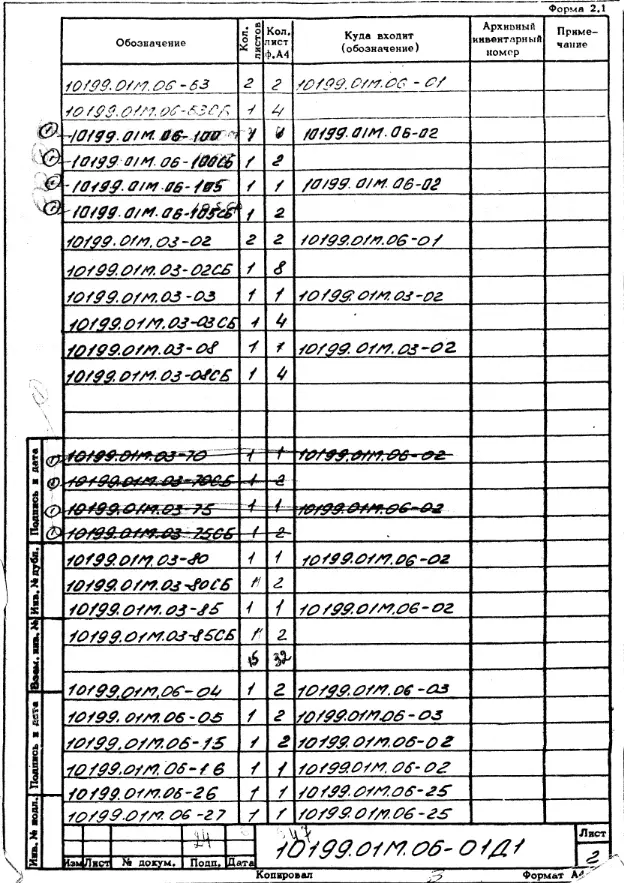 Форма 2.1
Обозначение Кол. листов Кол. лист ф.А4 Куда входит (обозначение) Архивный инвентарный номер Примечание
10199.01М.06-63 2 2 10199.01М.06-01
10199.01М.06-63СБ 1 4
10199.01М.06-100 1 10199.01М.06-02
10199.01М.06-100СБ 1 2
10199.01М.06-105 1 1 10199.01М.06-02
10199.01М.06-105СБ 1 2
10199.01М.03-02 2 2 10199.01М.06-01
10199.01М.03-02СБ 1 8
10199.01М.03-03 1 1 10199.01М.03-02
10199.01М.03-03СБ 1 4
10199.01М.03-08 1 1 10199.01М.03-02
10199.01М.03-08СБ 1 4
10199.01М.03-70 1 1 10199.01М.06-02
10199.01М.03-70СБ 1 2
10199.01М.03-75 1 1 10199.01М.06-02
10199.01М.03-75СБ 1 2
10199.01М.03-80 1 1 10199.01М.06-02
10199.01М.03-80СБ 1 2
10199.01М.03-85 1 1 10199.01М.06-02
10199.01М.03-85СБ 1 2
15 32
10199.01М.06-04 1 2 10199.01М.06-03
10199.01М.06-05 1 2 10199.01М.06-03
10199.01М.06-15 1 2 10199.01М.06-02
10199.01М.06-16 1 1 10199.01М.06-02
10199.01М.06-26 1 1 10199.01М.06-25
10199.01М.06-27 1 1 10199.01М.06-25
Подпись и дата
Инв. № дубл.
Взам. инв. №
Подпись и дата
Инв. № подл.
24 47
10199.01М.06-01Д1
Лист
2
Изм Лист № докум. Подп. Дата
Копировал Формат А4